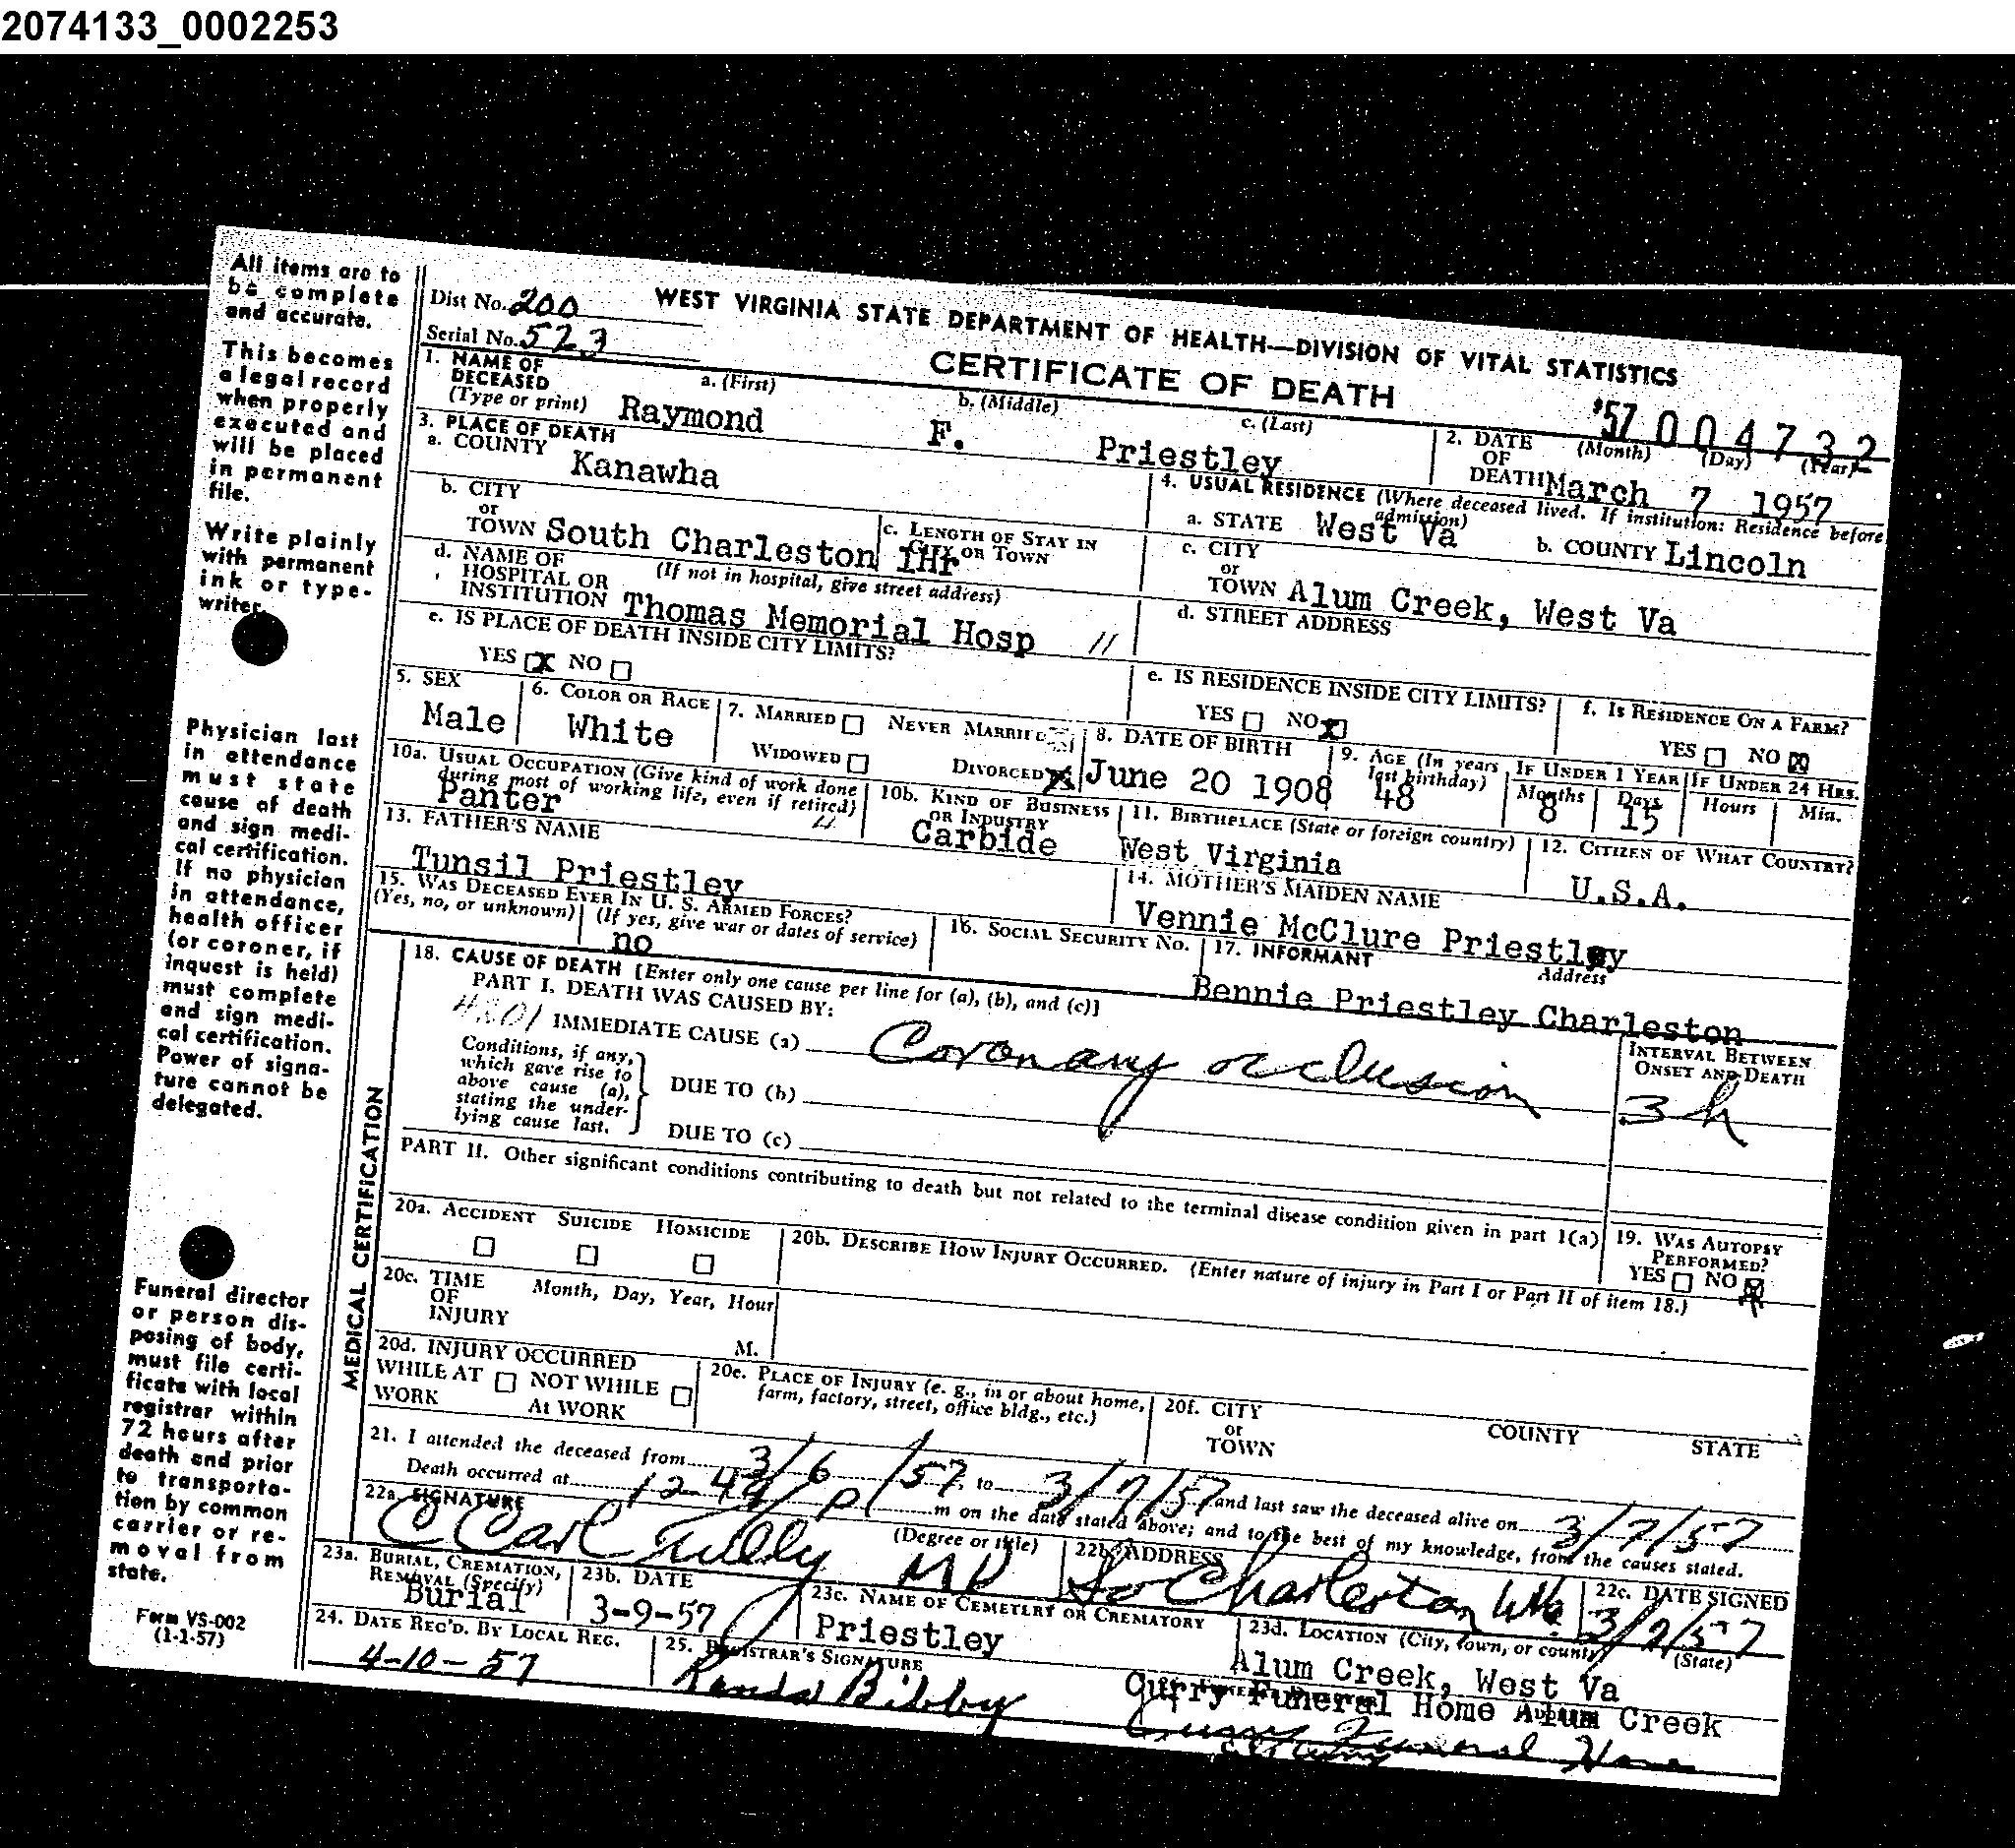 2074133_0002253
All items are to
be complete
and accurate.
This becomes
a legal record
when properly
executed and
will be placed
in permanent
file.
Write plainly
with permanent
ink or type-
writer.
Physician last
in attendance
must state
cause of death
and sign medi-
cal certification.
If no physician
in attendance,
health officer
(or coroner, if
inquest is held)
must complete
and sign medi-
cal certification.
Power of signa-
ture cannot be
delegated.
Funeral director
or person dis-
posing of body,
must file certi-
ficate with local
registrar within
72 hours after
death and prior
to transporta-
tion by common
carrier or re-
moval from
state.
Form VS-002
(1-1-57)
Dist No. 200
Serial No. 523
WEST VIRGINIA STATE DEPARTMENT OF HEALTH—DIVISION OF VITAL STATISTICS
CERTIFICATE OF DEATH
'57 004732
1. NAME OF DECEASED (Type or print)
a. (First) Raymond
b. (Middle) F.
c. (Last) Priestley
2. DATE OF DEATH (Month) (Day) (Year) March 7 1957
3. PLACE OF DEATH
a. COUNTY Kanawha
b. CITY or TOWN South Charleston
c. LENGTH OF STAY IN CITY OR TOWN 1Hr
d. NAME OF HOSPITAL OR INSTITUTION (If not in hospital, give street address) Thomas Memorial Hosp 11
e. IS PLACE OF DEATH INSIDE CITY LIMITS?
YES X NO
4. USUAL RESIDENCE (Where deceased lived. If institution: Residence before admission)
a. STATE West Va
b. COUNTY Lincoln
c. CITY or TOWN Alum Creek, West Va
d. STREET ADDRESS
e. IS RESIDENCE INSIDE CITY LIMITS?
YES NO X
f. IS RESIDENCE ON A FARM?
YES NO X
5. SEX Male
6. COLOR OR RACE White
7. MARRIED NEVER MARRIED
WIDOWED DIVORCED X
8. DATE OF BIRTH June 20 1908
9. AGE (In years last birthday) 48
IF UNDER 1 YEAR Months 8 Days 15
IF UNDER 24 HRS. Hours Min.
10a. USUAL OCCUPATION (Give kind of work done during most of working life, even if retired) Panter
10b. KIND OF BUSINESS OR INDUSTRY Carbide
11. BIRTHPLACE (State or foreign country) West Virginia
12. CITIZEN OF WHAT COUNTRY? U.S.A.
13. FATHER'S NAME Tunsil Priestley
14. MOTHER'S MAIDEN NAME Vennie McClure Priestley
15. WAS DECEASED EVER IN U. S. ARMED FORCES?
(Yes, no, or unknown) (If yes, give war or dates of service)
no
16. SOCIAL SECURITY NO.
17. INFORMANT Address
Bennie Priestley Charleston
MEDICAL CERTIFICATION
18. CAUSE OF DEATH [Enter only one cause per line for (a), (b), and (c)]
PART I. DEATH WAS CAUSED BY:
4201 IMMEDIATE CAUSE (a) Coronary occlusion
INTERVAL BETWEEN ONSET AND DEATH
3 h
Conditions, if any, which gave rise to above cause (a), stating the under-lying cause last.
DUE TO (b)
DUE TO (c)
PART II. Other significant conditions contributing to death but not related to the terminal disease condition given in part 1(a)
19. WAS AUTOPSY PERFORMED?
YES NO X
20a. ACCIDENT SUICIDE HOMICIDE
20b. DESCRIBE HOW INJURY OCCURRED. (Enter nature of injury in Part I or Part II of item 18.)
20c. TIME OF INJURY Month, Day, Year, Hour M.
20d. INJURY OCCURRED
WHILE AT WORK NOT WHILE At WORK
20e. PLACE OF INJURY (e. g., in or about home, farm, factory, street, office bldg., etc.)
20f. CITY or TOWN COUNTY STATE
21. I attended the deceased from 3/6/57, to 3/7/57 and last saw the deceased alive on 3/7/57
Death occurred at 12-49 p m on the date stated above; and to the best of my knowledge, from the causes stated.
22a. SIGNATURE (Degree or title)
C Carl Tully MD
22b. ADDRESS So Charleston W Va.
22c. DATE SIGNED 3/7/57
23a. BURIAL, CREMATION, REMOVAL (Specify) Burial
23b. DATE 3-9-57
23c. NAME OF CEMETERY OR CREMATORY Priestley
23d. LOCATION (City, town, or county) (State)
Alum Creek, West Va
24. DATE REC'D. BY LOCAL REG. 4-10-57
25. REGISTRAR'S SIGNATURE Bibby
Curry Funeral Home Alum Creek
Curry Funeral Home